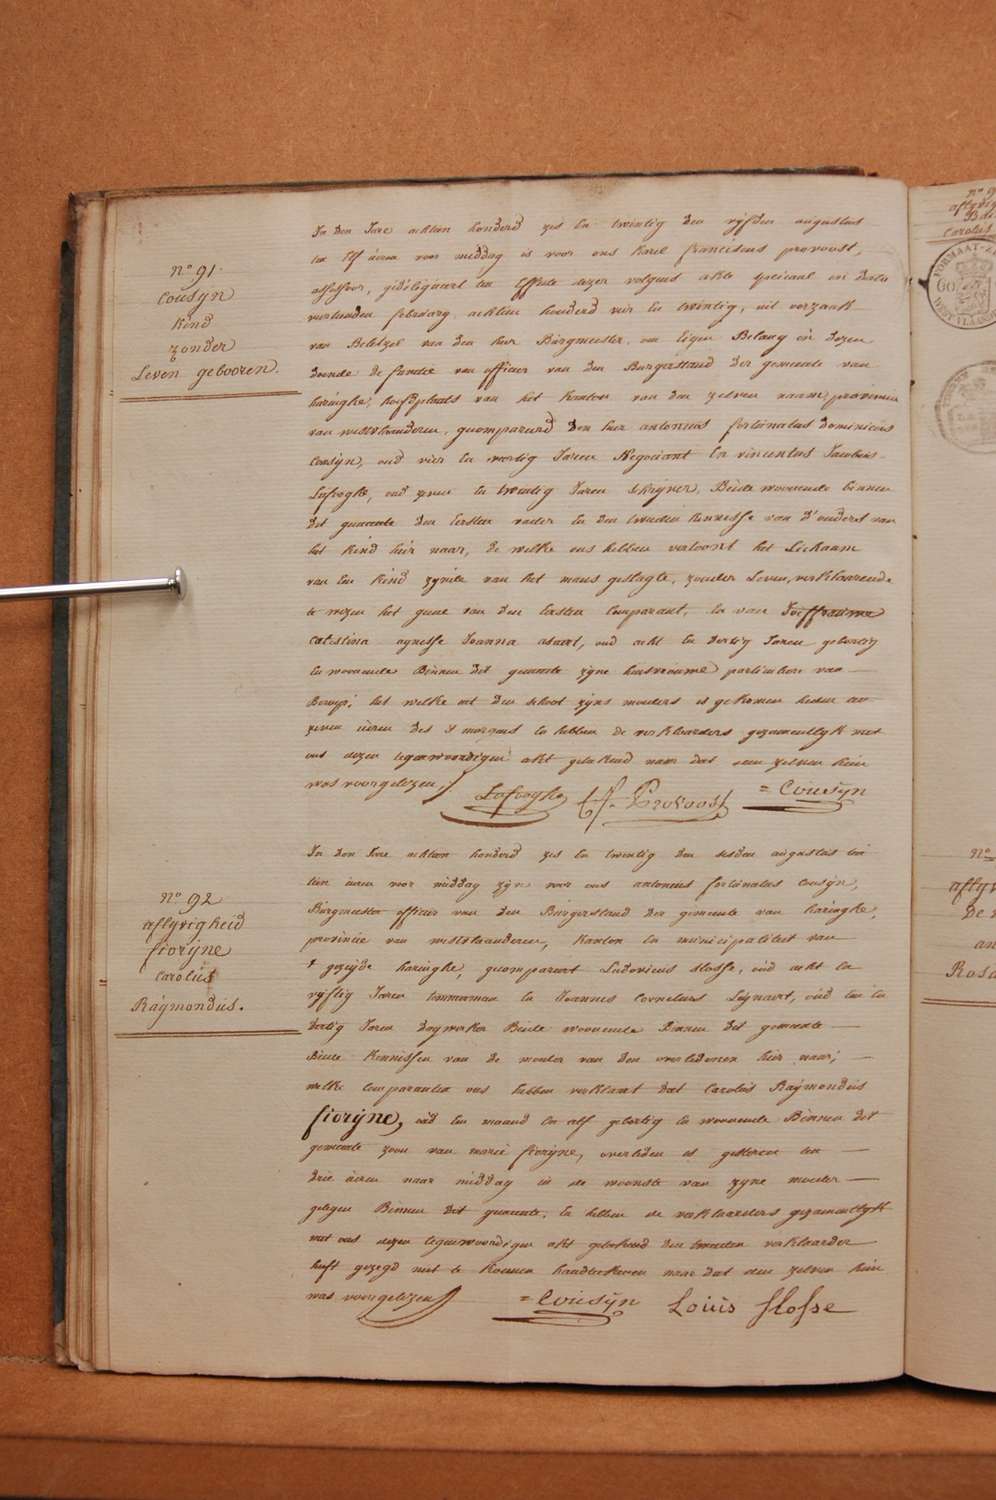 n° 91.
Cousÿn
Kind
zonder
Leven gebooren.
In den Jare achtien honderd zes en twintig den vyfden augustus
ten Elf uren voor middag is voor ons Karel franciscus provoost,
assessor, gedelegueert ten Effecte dezer volgens akte speciaal in date
februarÿ achtien honderd vier en twintig, uit oorzaak
van Beletzel van den heer Bürgmeester, om Eigen Belang in dezen
doende de functie van officier van den Burgerstand der gemeente van
haringhe, hoofdplaats van het Kanton van den zelven naam, provincie
van westvlaanderen, gecompareerd den heer antonius fortúnatus Dominicus
Cousÿn, oud vier en veertig Jaren Negociant En vincentius Jacobus
Lafooghe, oud zeven en twintig Jaren schryver, Beide woonende binnen
dit gemeente den Eersten vader en den tweeden Kennisse van d'ouders van
het Kind hier naar, de welke ons hebben vertoont het Lichaam
van een Kind zynde van het mans geslagte, zonder Leven, verklaarende
te wezen het gene van den Eersten Comparant, en van
Celestina agnesse Joanna asaert, oud acht en dertig Jaren gebortig
en woonende Binnen dit gemeente zÿne huisvrouwe particuliere van
Beroep; het welke uit den schoot zyns moeders is gekomen heden ten
zeven uren des 's morgens en hebben de verklaarders gezamentlÿk met
ons dezen tegenwoordigen akt geteekend naar dat aen zelven hun
was voorgelezen./.
Lafooghe C.F. Provoost = Cousÿn
n° 92
aflijvigheid
fiorÿne
Carolüs
Raÿmondüs.
In den Jare achtien honderd zes en twintig den sesden augustus ten
tien uren voor middag zÿn voor ons antonius fortúnatus Cousÿn,
Bürgmeester officier van den Bürgerstand der gemeente van haringhe,
provincie van westvlaanderen, Kanton en municipaliteit van
't gezeÿde haringhe, gecompareert Ludovicus Slosse, oud acht en
vÿftig Jaren timmerman en Joannes Cornelius Leÿnaert, oud een en
dertig Jaren dagwerker Beide woonende Binnen dit gemeente
Beide Kennissen van de moeder van den overledenen hier naar;
welke Comparanten ons hebben verklaart dat Carolüs Raÿmondüs
fiorÿne, oud een maand en alf gebortig en woonende Binnen dit
gemeente zoon van marie fiorÿne, overleden is gisteren ten
drie uren naar middag in de wooniste van zÿne moeder
gelegen Binnen dit gemeente; En hebben de verklaarders gezamentlÿk
met ons dezen tegenwoordigen akt geteekend den tweeden verklaarder
heeft gezegd niet te Konnen handteekenen naar dat aen zelven hun
was voorgelezen
= Cousÿn Louis Slosse